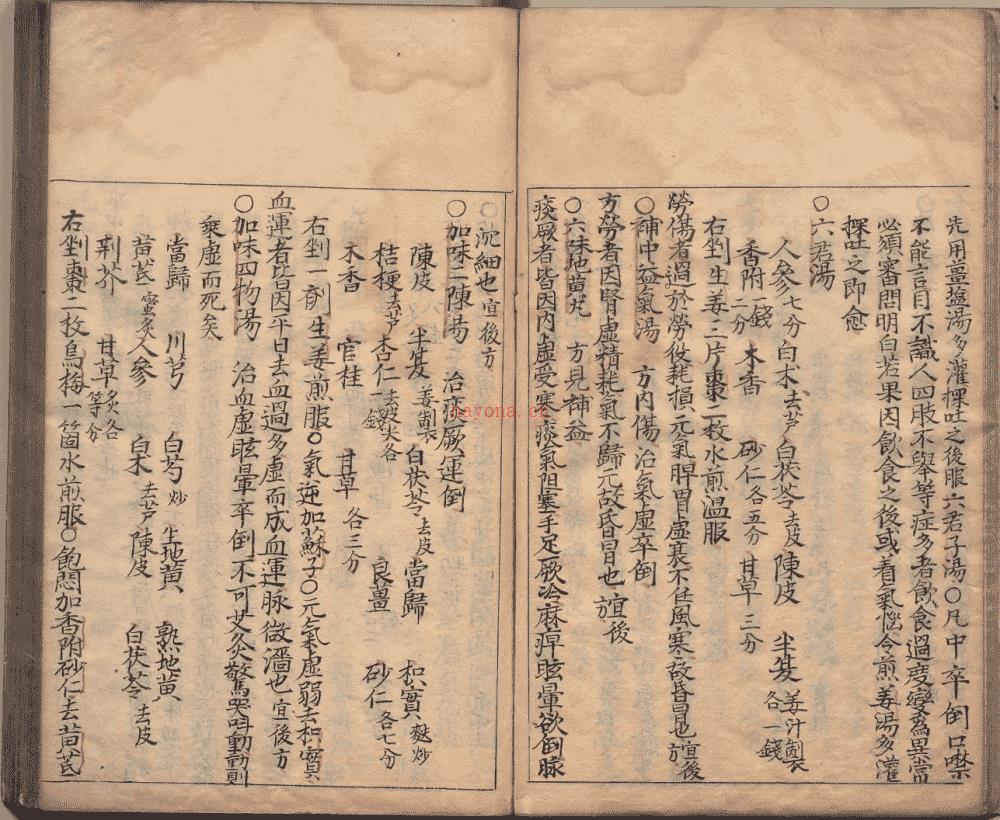 先用薑塩湯多灌探吐之後服六君子湯〇凡中卒倒口噤
不能言目不識人四肢不舉等症多者飲食過度變為異常
必須審問明白若果因飲食之後或着氣惱令煎姜湯多灌
探吐之即愈
〇六君湯
人參七分 白术去芦 白茯苓去皮 陳皮 半夏姜汁製各一錢
香附一錢二分 木香 砂仁各五分 甘草三分
右剉生姜三片棗二枚水煎温服
勞傷者過於勞役耗損元氣脾胃虛衰不任風寒故昏冒也宜後
〇補中益氣湯 方內傷治氣虛卒倒
方勞者因腎虛精耗氣不歸元故昏冒也宜後
〇六味地黄丸 方見補益
痰厥者皆因内虛受寒痰氣阻塞手足厥冷麻痺眩暈欲倒脉
〇沈細也宜後方
〇加味二陳湯 治痰厥運倒
陳皮 半夏姜製 白茯苓去皮 當歸 枳實麩炒
桔梗去芦 杏仁去皮尖各一錢 良薑 砂仁各七分
木香 官桂 甘草各三分
右剉一剤生姜煎服〇氣逆加蘇子〇元氣虛弱去枳實
血運者皆因平日去血過多虛而成血運脉微濇也宜後方
〇加味四物湯 治血虛眩暈卒倒不可艾灸驚哭叫動動則
乘虛而死矣
當歸 川芎 白芍炒 生地黄 熟地黄
黄芪蜜炙 人參 白术去芦 陳皮 白茯苓去皮
荆芥 甘草炙各等分
右剉棗二枚烏梅一箇水煎服〇飽悶加香附砂仁去黄芪
hayona.cn